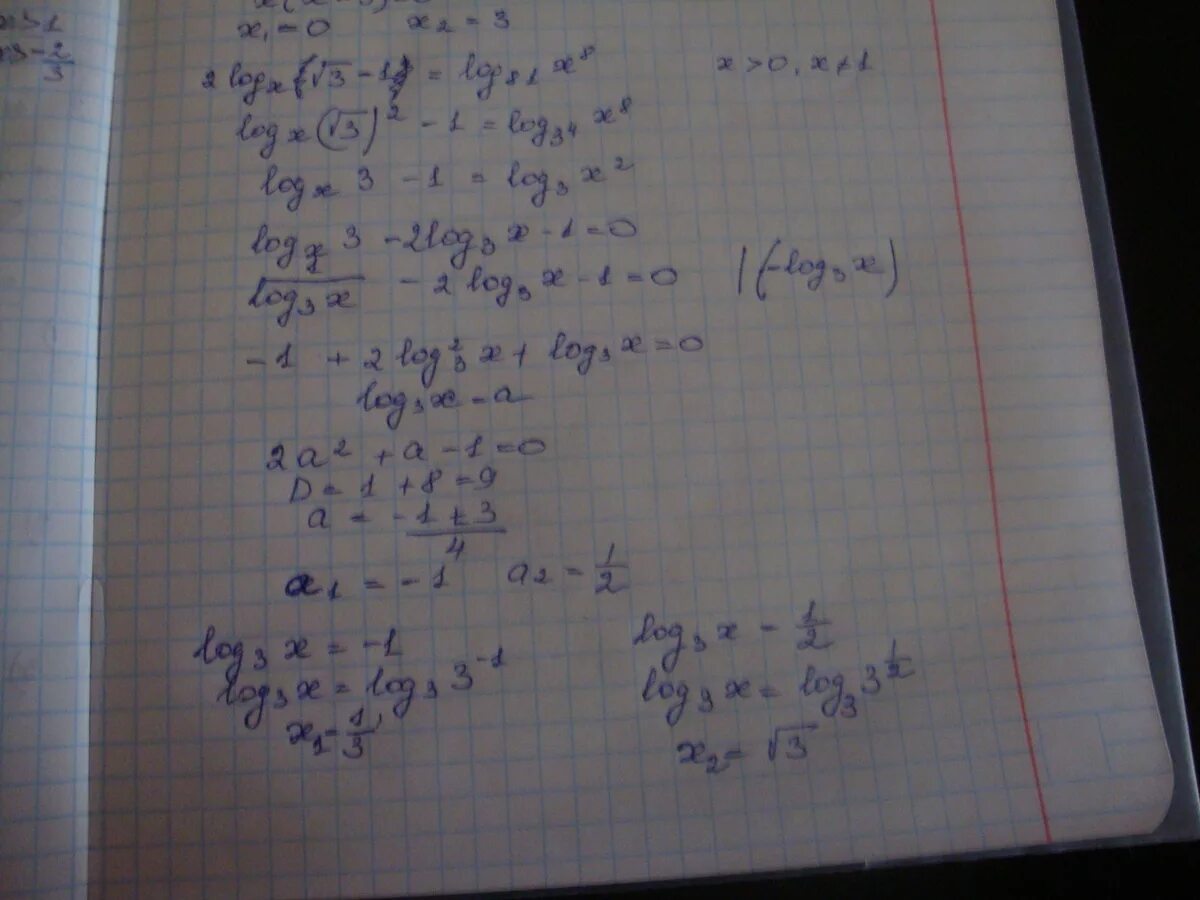 x₁ = 0 x₂ = 3
2 logₓ √3 - 1 = log₈₁ x⁸ x > 0, x ≠ 1
logₓ (√3)² - 1 = log₃⁴ x⁸
logₓ 3 - 1 = log₃ x²
logₓ 3 - 2 log₃ x - 1 = 0
1/log₃ x - 2 log₃ x - 1 = 0 | (-log₃ x)
-1 + 2 log₃² x + log₃ x = 0
log₃ x = a
2a² + a - 1 = 0
D = 1 + 8 = 9
a = (-1 ± 3)/4
a₁ = -1 a₂ = 1/2
log₃ x = -1
log₃ x = log₃ 3⁻¹
x₁ = 1/3,
log₃ x = 1/2
log₃ x = log₃ 3^(1/2)
x₂ = √3